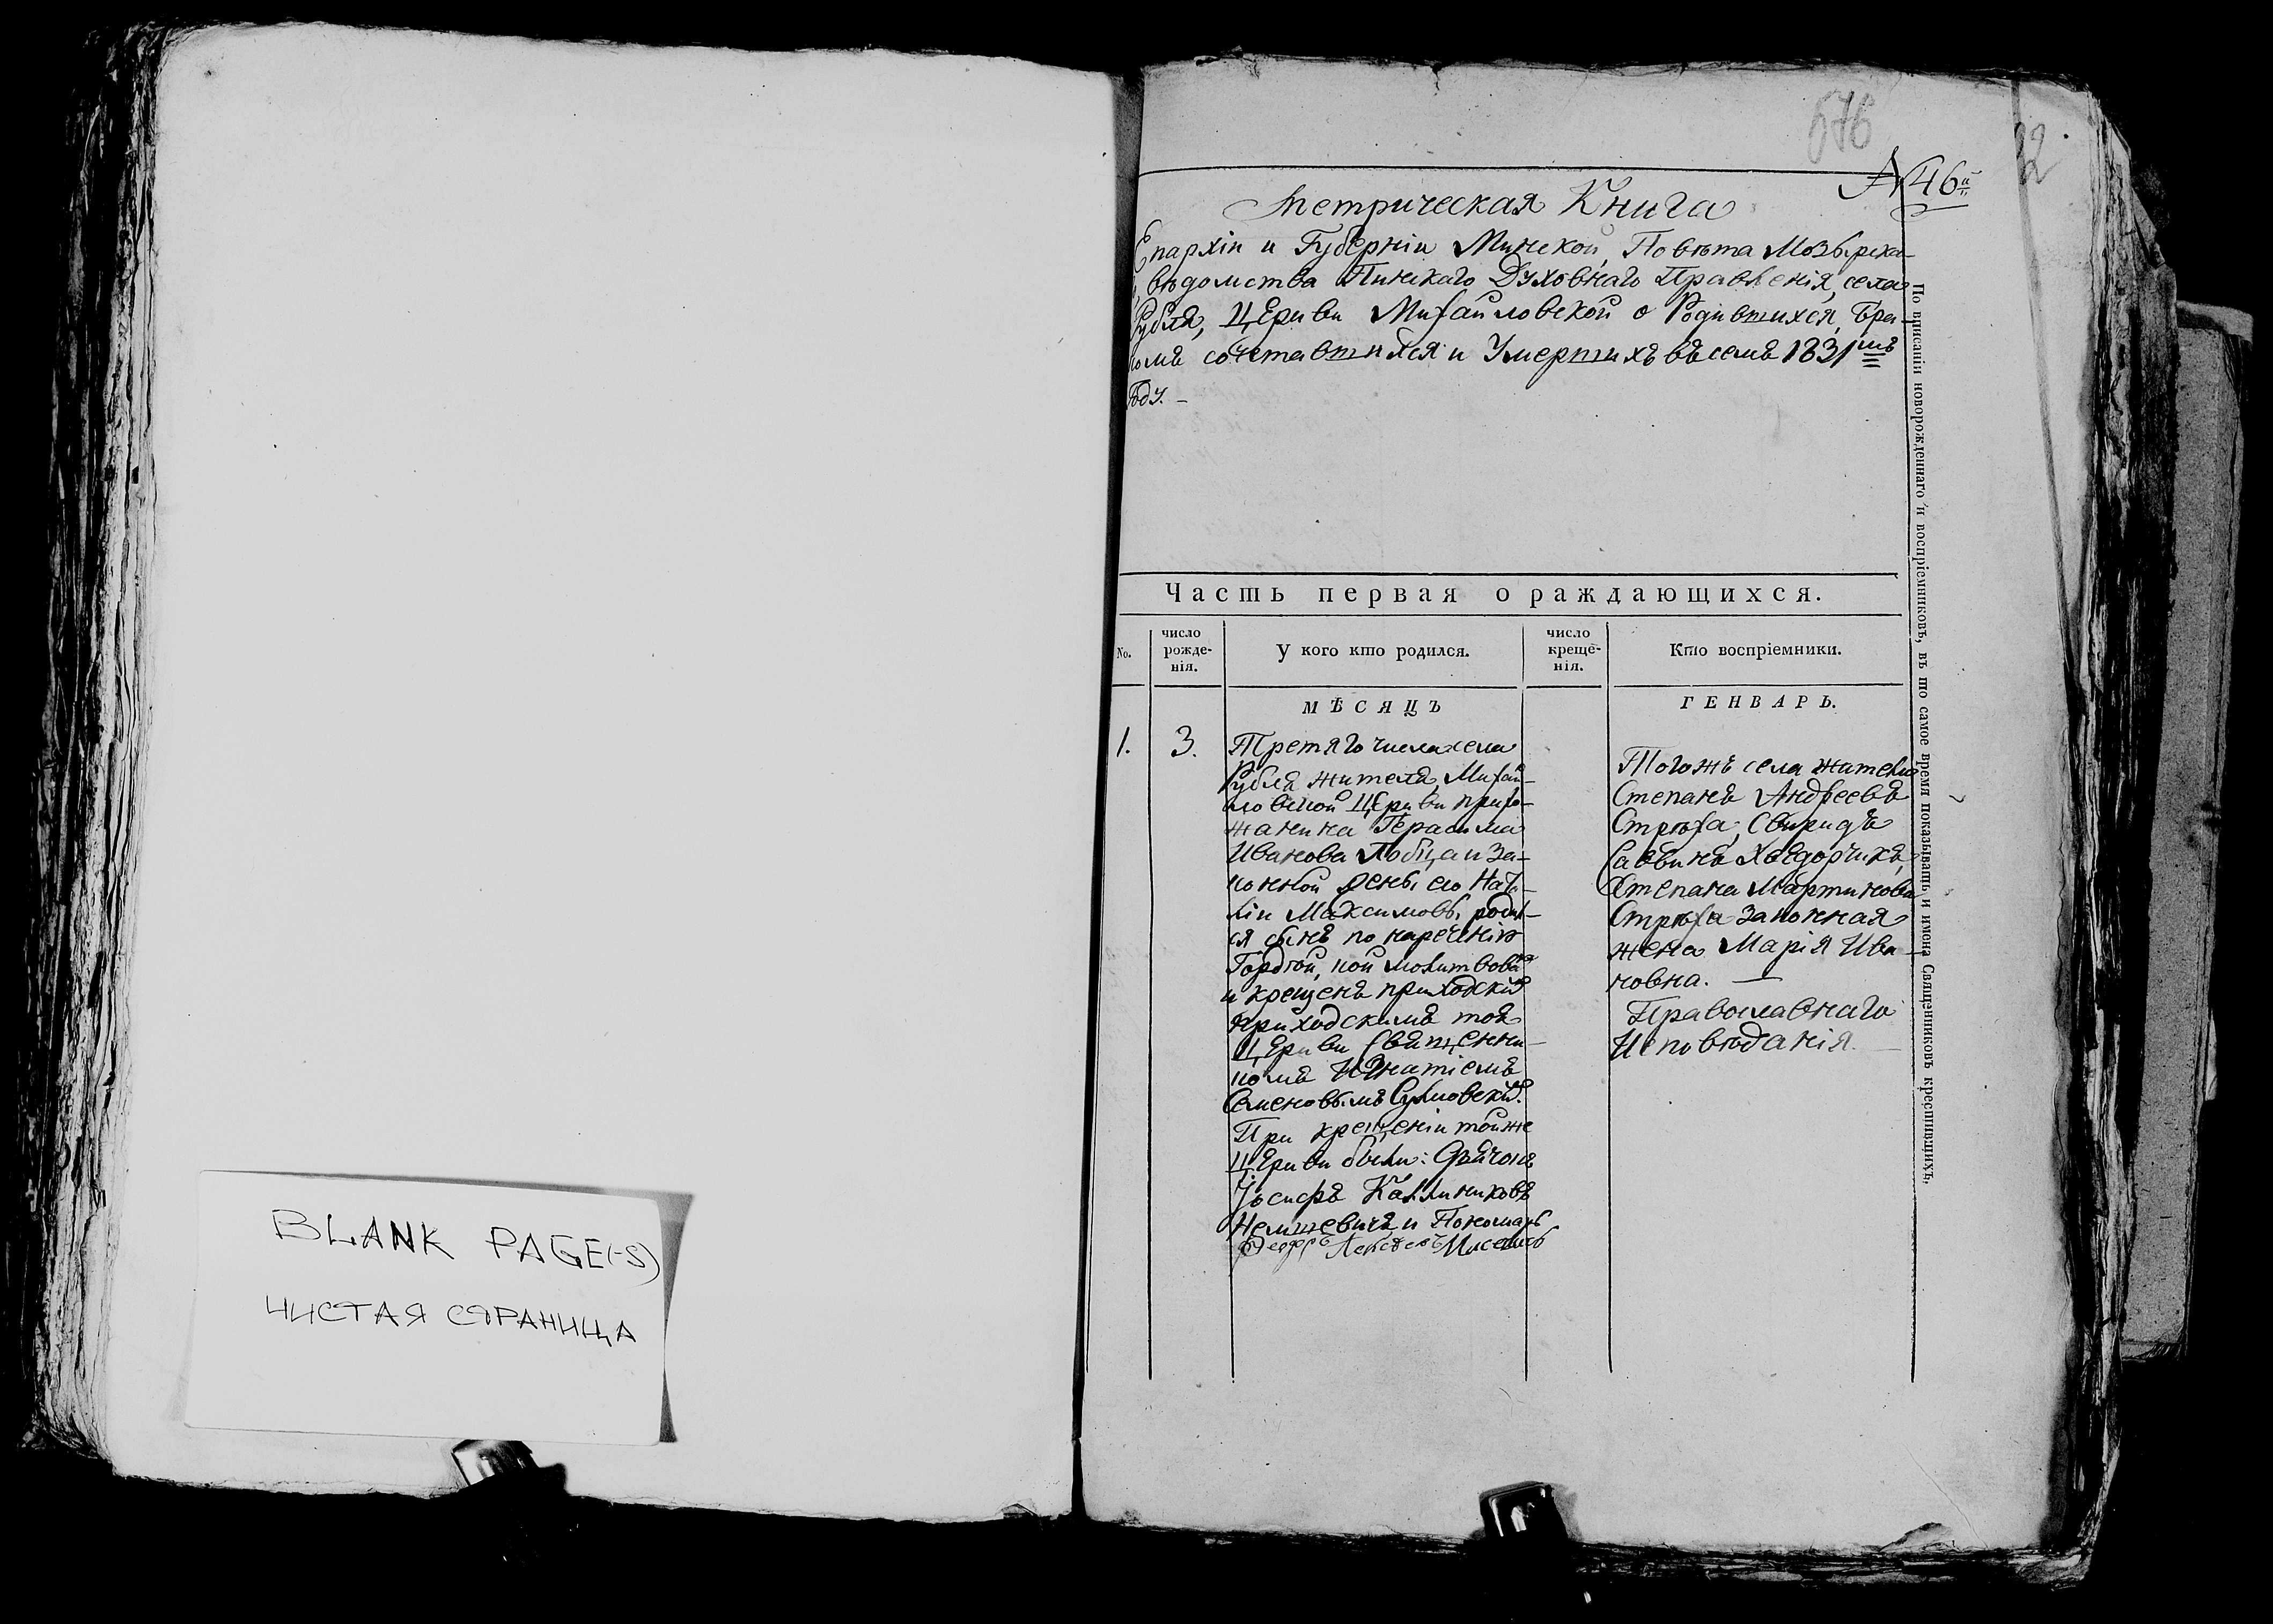 BLANK PAGE(-S)
ЧИСТАЯ СТРАНИЦА
676
12
№ 46й
Метрическая Книга
Епархіи и Губерніи Минской, Повѣта Мозырска-
вѣдомства Пинскаго Духовнаго Правленія, села
Рубля, Церкви Михайловской о Родившихся, Бра-
комъ сочетавшихся и Умершихъ въ семъ 1831мъ
Году. –
Часть первая о раждающихся.
No.
число рожде-
нія.
У кого кто родился.
число креще-
нія.
Кто воспріемники.
МѢСЯЦЪ
ГЕНВАРЬ.
1.
3.
Третяго числа села
Рубля жителя, Михай-
ловской Церкви прихо-
жанина Герасима
Иванова и за-
конной жены его Ната-
ліи Максимовы, родил-
ся сынъ по нареченію
Гордѣй, кой молитвованъ
и крещенъ приходским
приходскимъ тоя
Церкви Священни-
комъ Игнатіемъ
Семеновымъ
При крещеніи тойже
Церкви были: Дьячокъ
Іосифъ Калиниковъ
Немшевичъ и Пономарь
Федоръ
Тогожъ села жители
Степанъ Андреевъ
Стрѣха, Свиридъ
Саввинъ Хведорчикъ,
Степана Мартинова
Стрѣха законная
жена Марія Ива-
новна. —
Православнаго
Исповѣданія. —
По вписаніи новорожденнаго и воспріемниковъ, въ то самое время показывать и имена Священниковъ крестившихъ.